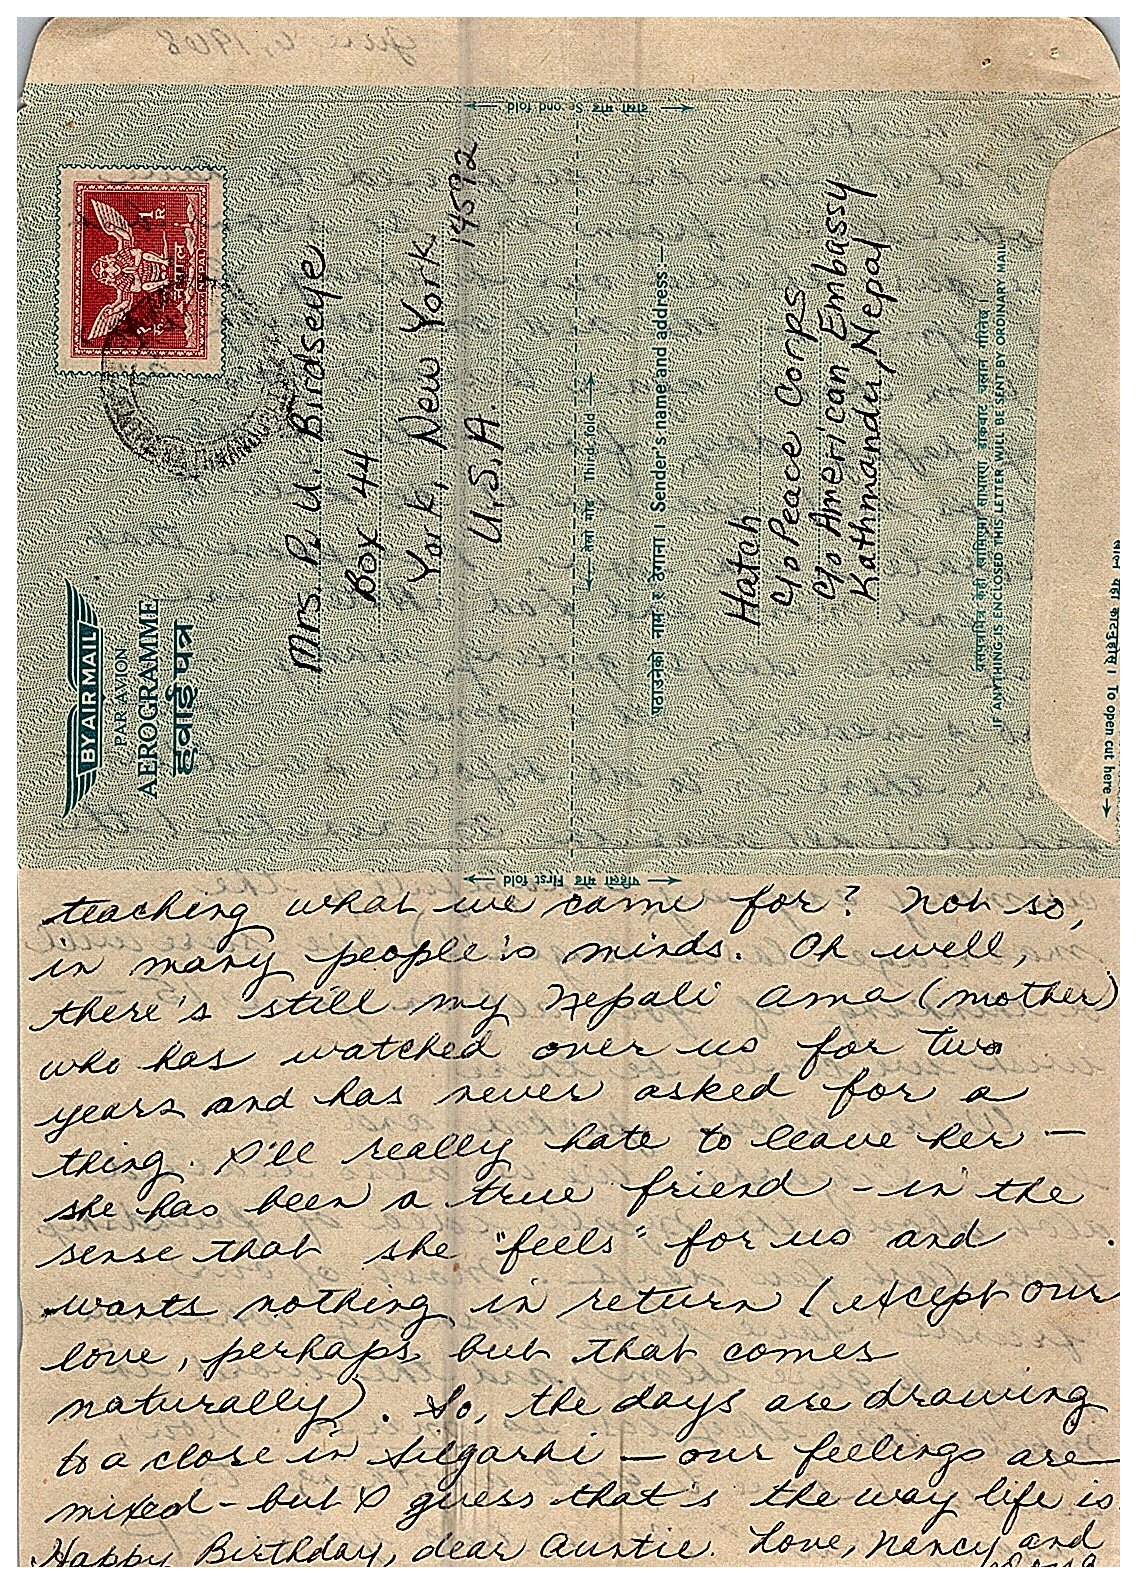 June 6, 1968
दोस्रो मोड Second fold
BY AIR MAIL
PAR AVION
AEROGRAMME
हवाई पत्र
1
R
नेपाल
NEPAL
Mrs. P. U. Birdseye
Box 44
York, New York
14592
U.S.A.
तेस्रो मोड Third fold
पठाउनेको नाम र ठेगाना । Sender's name and address
Hatch
c/o Peace Corps
c/o American Embassy
Kathmandu, Nepal
IF ANYTHING IS ENCLOSED THIS LETTER WILL BE SENT BY ORDINARY MAIL
To open cut here
पहिलो मोड First fold
teaching what we came for? Not so,
in many people's minds. Oh well,
there's still my Nepali Ama (mother)
who has watched over us for two
years and has never asked for a
thing. I'll really hate to leave her —
she has been a true friend - in the
sense that she "feels" for us and
wants nothing in return (except our
love, perhaps but that comes
naturally). So, the days are drawing
to a close in Silgarhi — our feelings are
mixed - but I guess that's the way life is
Happy Birthday, dear Auntie. Love, Nancy and